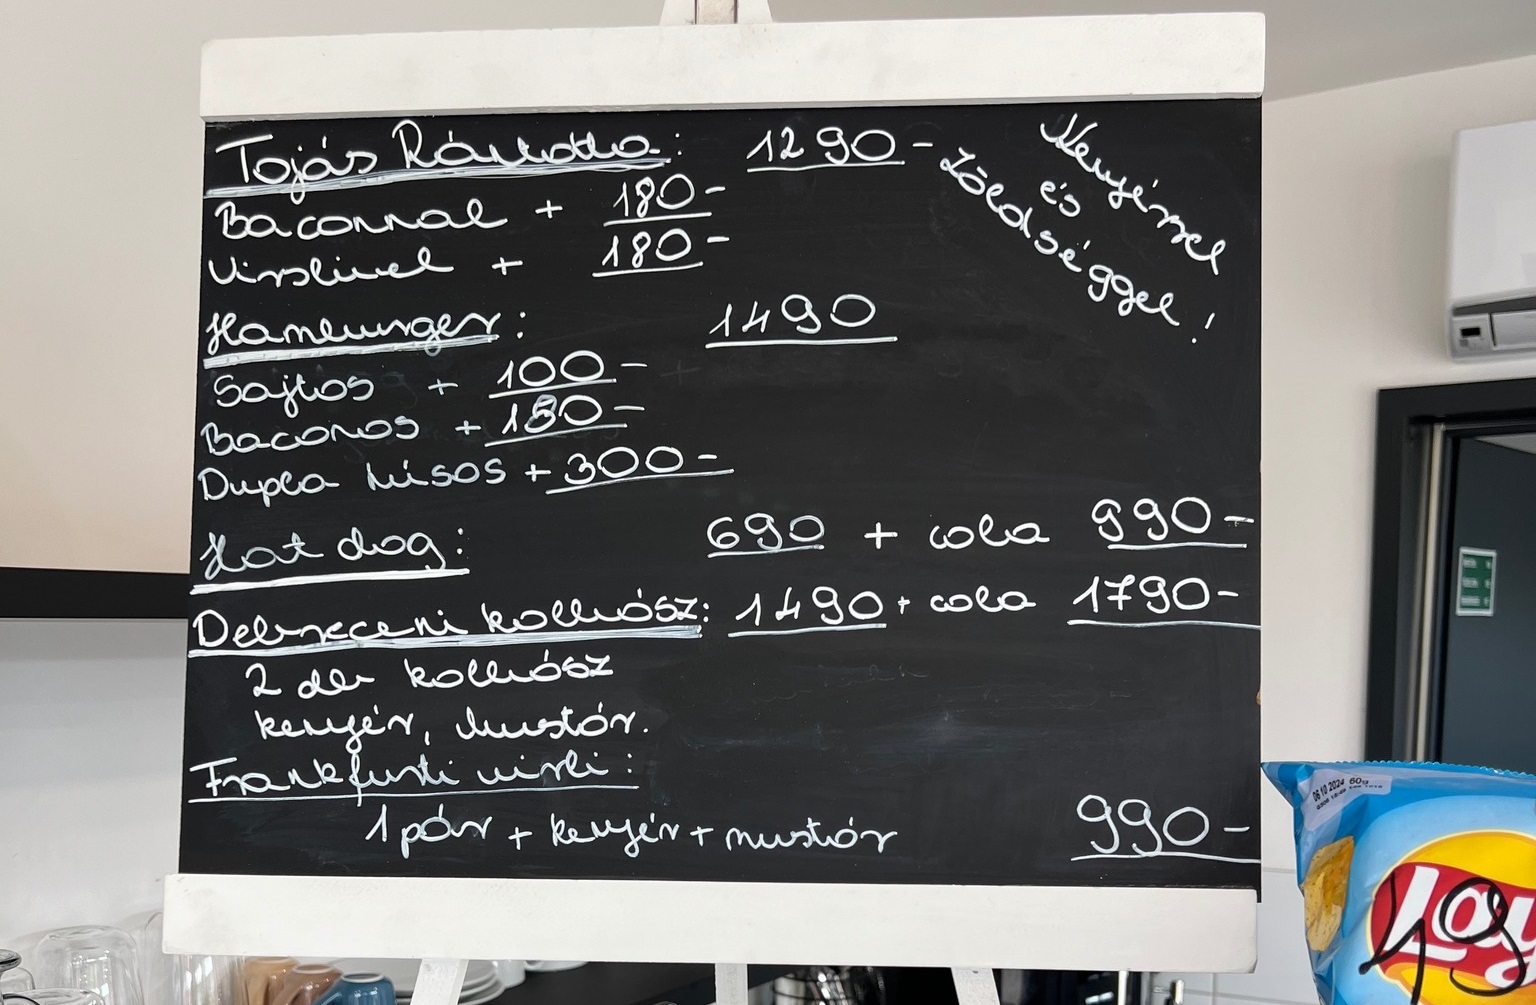 Tojás Rántotta: 1290-
Kenyérrel
és
Zöldséggel!
Baconnal + 180-
Virslivel + 180-
Hamburger: 1490
Sajtos + 100-
Baconos + 180-
Dupla húsos + 300-
Hot dog: 690 + cola 990-
Debreceni kolbász: 1490 + cola 1790-
2 db kolbász
kenyér, mustár.
Frankfurti virsli:
1 pár + kenyér + mustár 990-
06.10.2024 60g
Lay
49